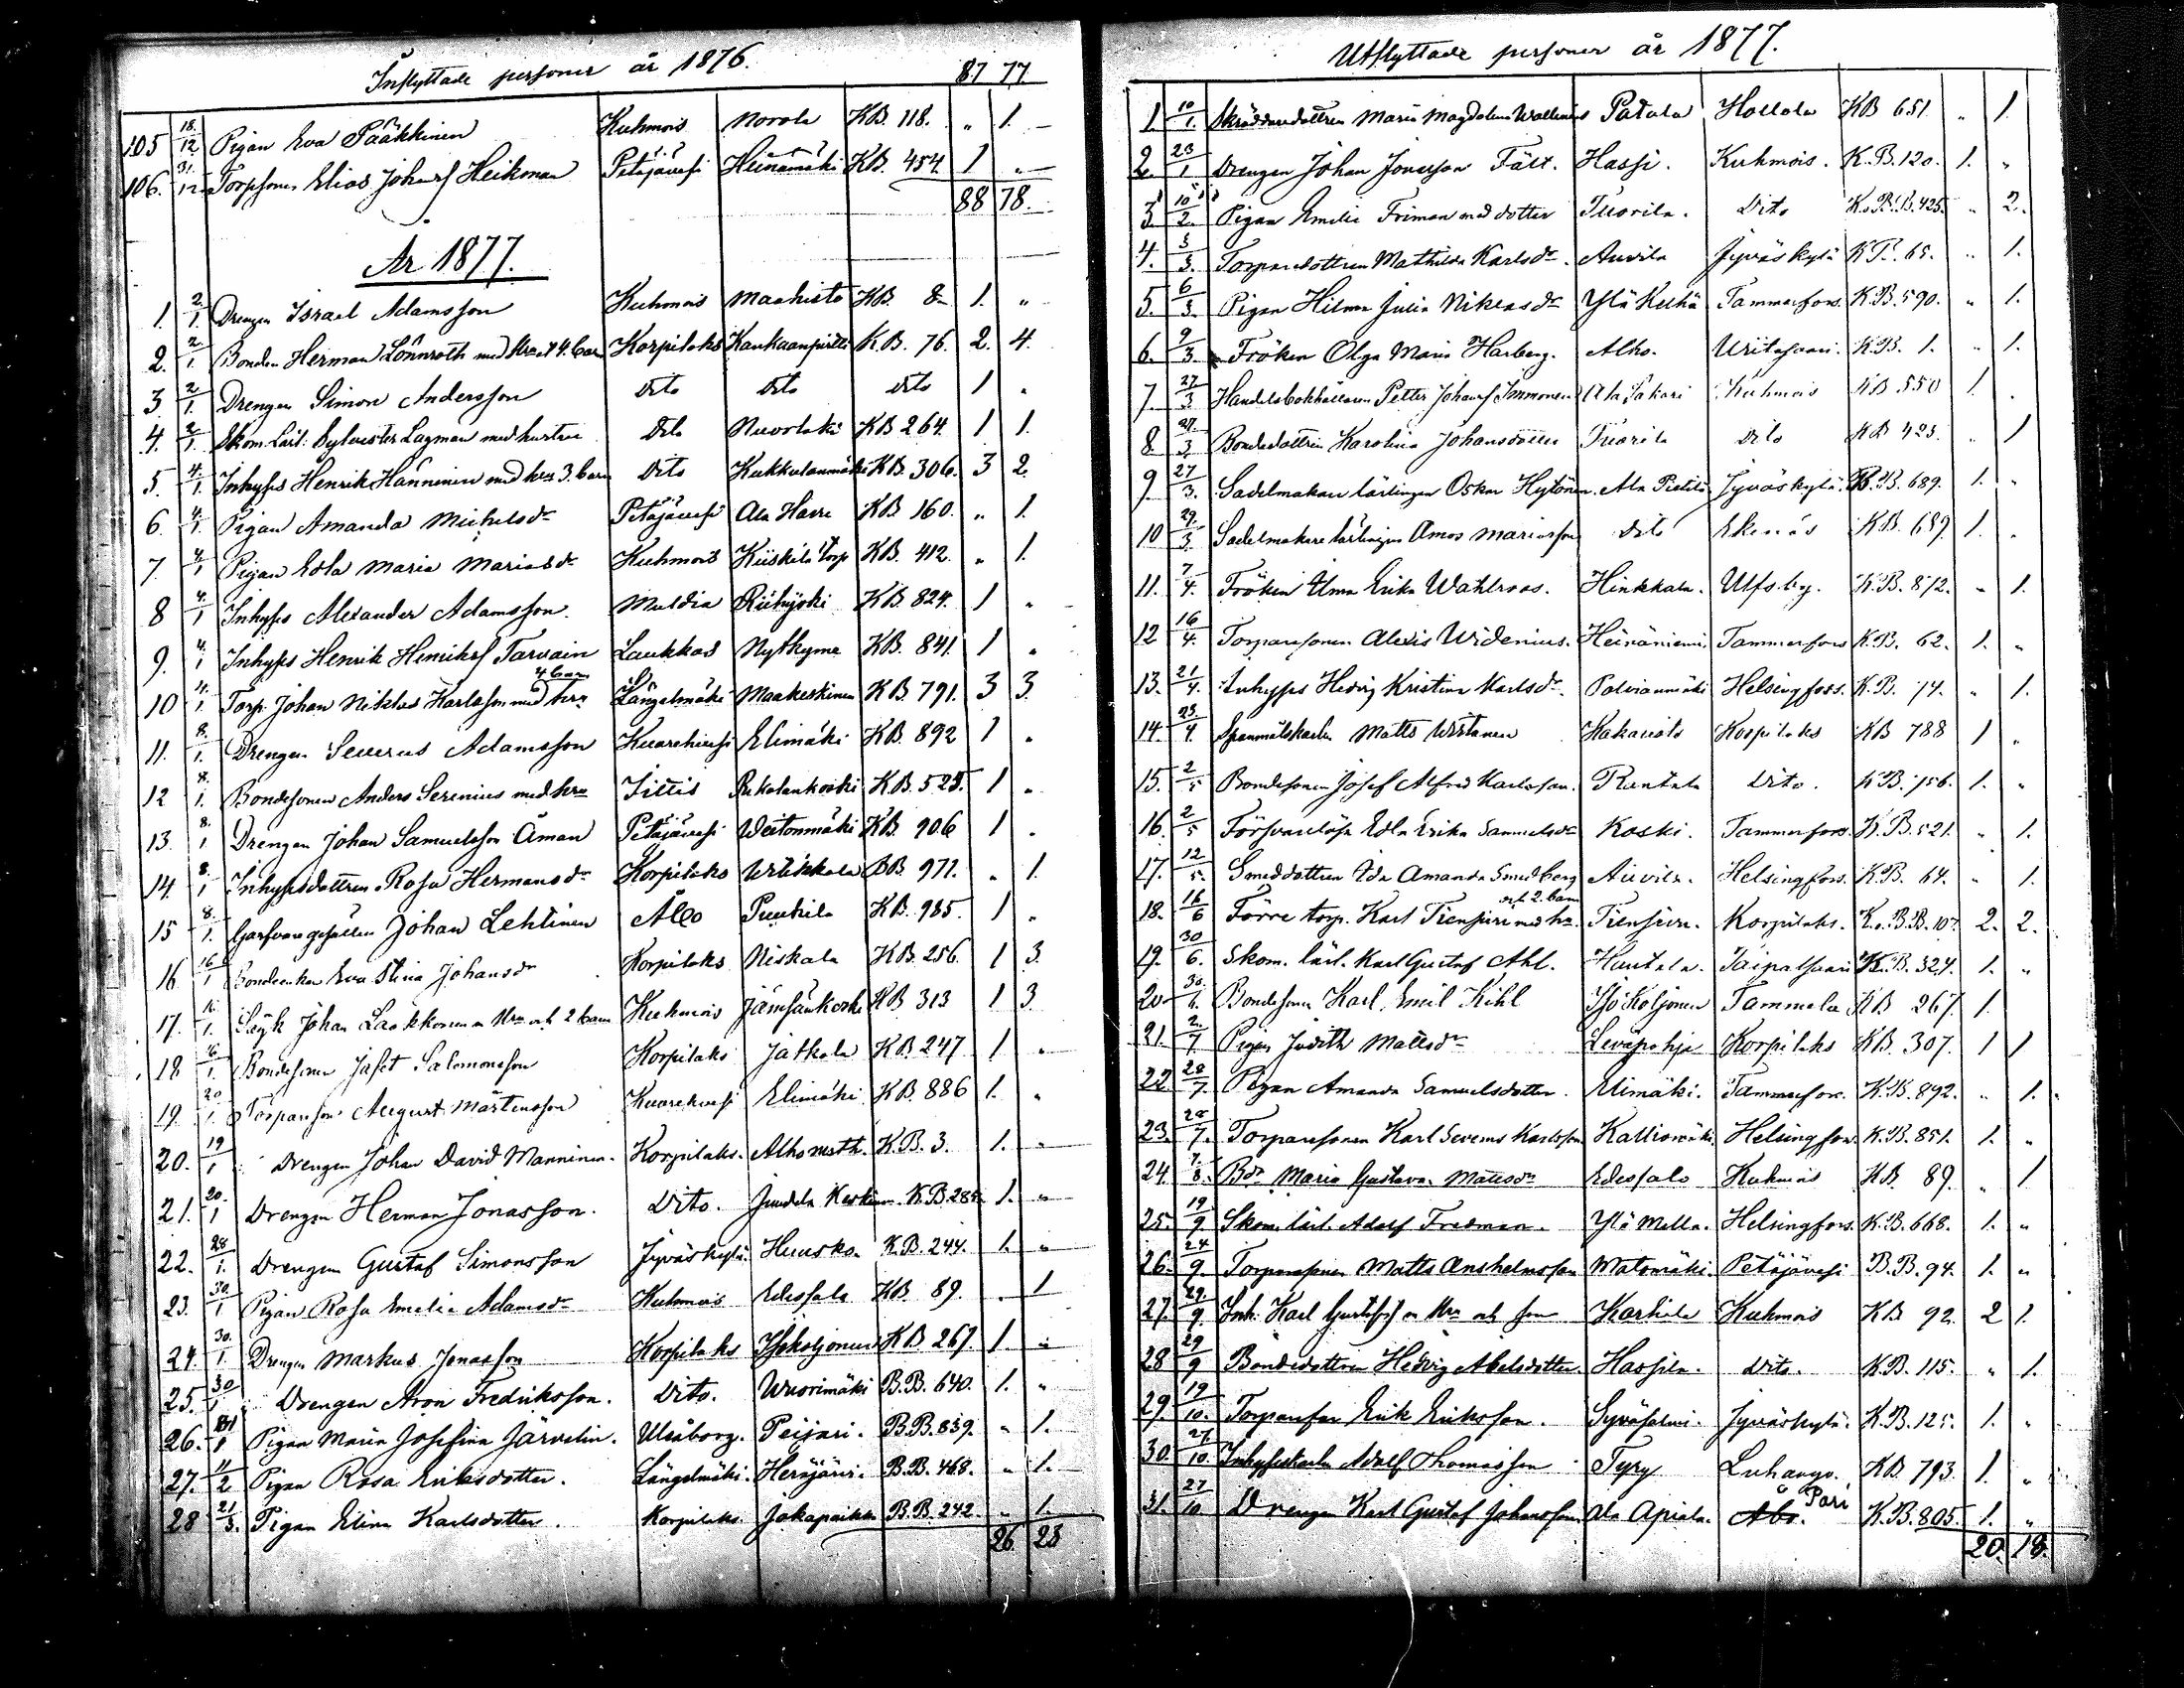 Inflyttade personer år 1876.
87 77
105 18/12 Pigan Eva Pääkkinen Kuhmois Norola KB. 118. " 1.
106. 31/12 Torpsonen Elias Johansf Heikman Petäjävesi Heinämäki KB. 454. 1 "
88 78.
År 1877.
1. 2/1. Drengen Israel Adamsson Kuhmois Maahisto KB. 8 1. "
2. 2/1. Bonden Herman Lönnroth med hru o 4. barn Korpilaks Kankaanpirtti K.B. 76. 2. 4.
3 2/1. Drengen Simon Andersson Dito Dito Dito 1 "
4. 2/1. Skom. Lärl. Sylvester Lagman med hustru Dito Nuorlaki KB 264. 1 1.
5. 4/1. Inhyses Henrik Hänninen med hru 3. barn Dito Kukkulanmäki KB. 306. 3 2.
6. 4/1. Pigan Amanda Michelsdr Petäjävesi Ala Harre KB 160. " 1.
7. 4/1 Pigan Edla Maria Mariasdr Kuhmois Kiiskilä torp KB. 412. " 1.
8 4/1 Inhyses Alexander Adamsson. Muldia Riihijoki KB. 824. 1 "
9. 4/1 Inhyses Henrik Henriksf Tarvain Laukkas Nytkyme KB. 841. 1 "
10 4/1 Torp. Johan Niklas Karlsson med hru 4 barn Längelmäki Maakeskinen KB 791. 3 3.
11. 8/1. Drengen Severus Adamsson Kuorehvesi Elimäki KB. 892 1 "
12 8/1. Bondesonen Anders Serenius med hru Iittis Rekolankoski KB. 525. 1 "
13. 8/1 Drengen Johan Samuelsson Åman Petäjävesi Wartonmäki KB. 906 1 "
14. 8/1 Inhysesdottren Rosa Hermansdr Korpilaks Urtikkala BB 971. " 1.
15 8/1. Garfvaregesällen Johan Lehtinen Åbo Puukila KB. 985. 1 "
16 16/1 Bondeenkan Eva Stina Johansdr Korpilaks Niskala KB. 256. 1 3.
17. 16/1. Johan Laakkonen m hru och 2 barn Kuhmois Jämsänkoski KB 313 1 3.
18 16/1. Bondesonen Jafet Salomonsson Korpilaks Jatkola KB. 247 1 "
19. 20/1. Torparesonen August Mårtensson Kuorehvesi Elimäki KB. 886 1. "
20. 19/1 Drengen Johan David Manninen. Korpilaks. Alho K.B. 3. 1. "
21. 20/1 Drengen Herman Jonasson. Dito. Juudila Keskinen K.B. 285. 1. "
22. 28/1. Drengen Gustaf Simonsson Jyväskylä. Huusko. K.B. 244. 1. "
23. 30/1 Pigan Rosa Emelia Adamsdr Kuhmois Edessalo KB. 89. " 1
24. 30/1. Drengen Markus Jonasson Korpilaks Ysökoljonen KB. 267. 1. "
25. 30/1 Drengen Aron Fredriksson. Dito. Wuorimäki B.B. 640. 1. "
26. Pigan Maria Josefina Järvelin. Uleåborg. Peijari. B.B. 839. " 1.
27. 11/2 Pigan Rosa Eriksdotter. Längelmäki. Heräjärvi. B.B. 468. " 1.
28 21/3. Pigan Elina Karlsdotter. Korpilaks. Jokapaikka B.B. 242. " 1.
26 23
Utflyttade personer år 1877.
1. 10/1. Skräddaredottren Maria Magdalena Wallenius Patala Hollola KB 651. " 1.
2. 23/1 Drengen Johan Jonasson Fält. Hassi. Kuhmois. K.B. 120. 1. "
3. 10/2. Pigan Emilie Friman med dotter Tuorila. Dito K.o.B.B. 425. " 2.
4. 3/3. Torparedottren Mathilda Karlsdr. Auvila Jyväskylä K.B. 65. " 1.
5. 6/3. Pigan Hilma Julia Niklasdr Ylä Kuhä Tammerfors. K.B. 590. " 1.
6. 9/3. Fröken Olga Maria Harberg. Alho. Uritasaari. K.B. 1. " 1.
7. 27/3 Handelsbokhållaren Petter Johansf Immonen Ala Sakari Kuhmois KB 550 1. "
8. 27/3. Bondedottren Karolina Johansdotter Tuorila Dito KB 425. " 1
9. 27/3. Sadelmakare lärlingen Oskar Hytönen. Ala Pietilä Jyväskylä. K.B. 689. 1. "
10 29/3. Sadelmakare lärlingen Amos Mariasson Dito Ekenäs K.B. 689. 1. "
11. 7/4. Fröken Alma Erika Wahlroos. Hinkkala. Ulfsby. K.B. 812. " 1.
12 16/4. Torparesonen Alexis Widenius. Heinäniemi. Tammerfors K.B. 62. 1. "
13. 21/4. Inhyses Hedvig Kristina Karlsdr. Palvianmäki Helsingfors. K.B. 74. " 1.
14. 23/4. Spanmålskarlen Matts Wirtanen Kakaristo Korpilaks KB 788 1 "
15. 2/5 Bondesonen Josef Alfred Karlsson. Rantala Dito. K.B. 756. 1. "
16. 2/5 Försvarslösa Edla Erika Samuelsdr Koski. Tammerfors. K.B. 521. " 1.
17. 12/5. Smeddottren Ida Amanda Smedberg Auvila. Helsingfors. K.B. 64. " 1.
18. 16/6 Förre torp. Karl Tiensuu med hu. och 2. barn Tiensuu. Korpilaks. K.o.B.B. 107 2. 2.
19. 30/6. Skom. lärl. Karl Gustaf Ahl. Hantala. Taipalsaari K.B. 324. 1. "
20 30/6. Bondesonen Karl Emil Kihl Ysö Koljonen Tammela KB 267. 1.
21. 2/7 Pigan Judith Mattsdr Leväpohja Korpilaks KB. 307. 1 1
22. 28/7. Pigan Amanda Samuelsdotter. Elimäki. Tammerfors. K.B. 892. " 1.
23. 28/7. Torparesonen Karl Severus Karlsson Kalliomäki. Helsingfors. K.B. 851. 1. "
24. 7/8. Bdr Maria Gustava Mattsdr Edessalo Kuhmois KB 89. " 1
25. 19/9 Skom. lärl. Adolf Fredman. Ylä Mella. Helsingfors. K.B. 668. 1. "
26. 24/9. Torparesonen Matts Anshelmsson Matomäki. Petäjävesi B.B. 94. 1. "
27. 29/9 Inh. Karl Gustafsf m hru och son Karkila Kuhmois KB 92. 2 1.
28 29/9 Bondedottren Hedvig Abelsdotter. Hassila. Dito. K.B. 115. " 1.
29. 19/10. Torparesonen Erik Eriksson. Syväsalmi. Jyväskylä. K.B. 125. 1. "
30. 27/10. Inhyseskarlen Adolf Thomasson Tyry Luhango. KB. 793. 1. "
31. 27/10 Drengen Karl Gustaf Johansson Ala Apiala. Åbo. Pari K.B. 805. 1. "
20. 18.